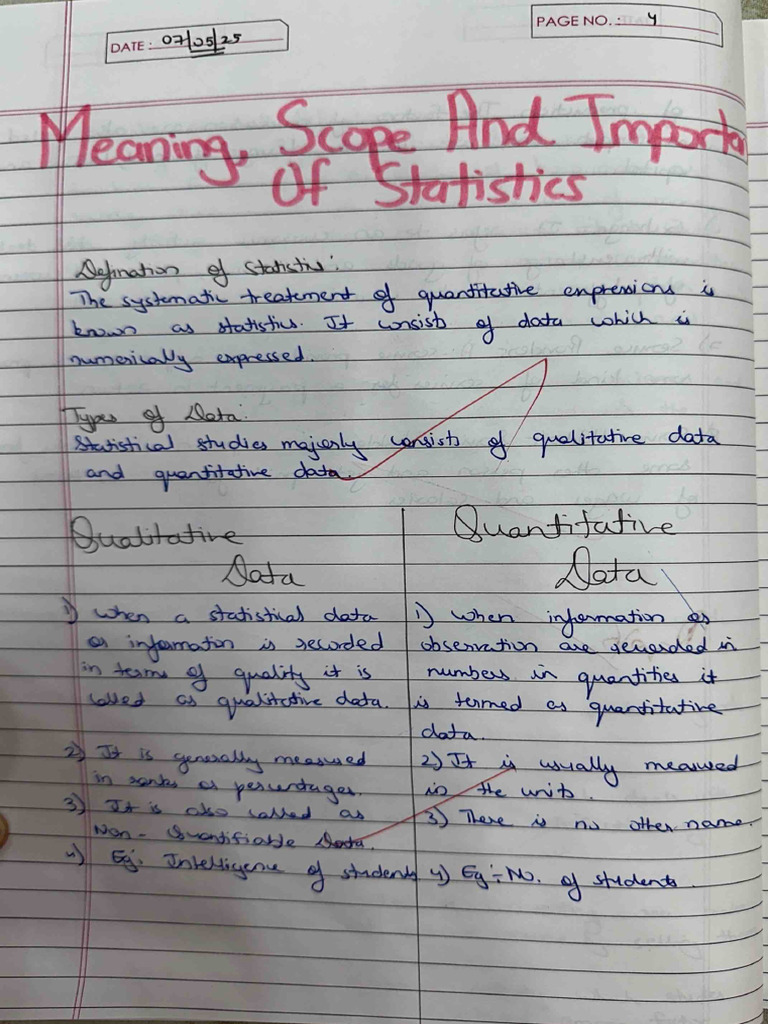 DATE: 07/05/25
PAGE NO.: 4
Meaning, Scope And Importa
Of Statistics
Defination of Statistis:
The systematic treatement of quantitative enpressions is
known as statistics. It consists of data which is
numerically expressed.
Types of Data:
Statistical studies majorly consists of qualitative data
and quantitative data.
Qualitative
Data
1) When a statistical data
or information is recorded
in terms of quality it is
called as qualitative data.
2) It is generally measured
in ranks or percentages.
3) It is also called as
Non-Quantifiable Data.
4) Eg: Intelligence of students
Quantitative
Data
1) When information or
observation are recorded in
numbers in quantities it
is termed as quantitative
data.
2) It is usually measured
in the units.
3) There is no other name.
4) Eg:- No. of students.